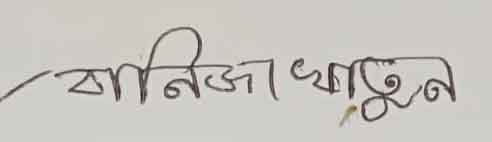 কানিজা খাতুন